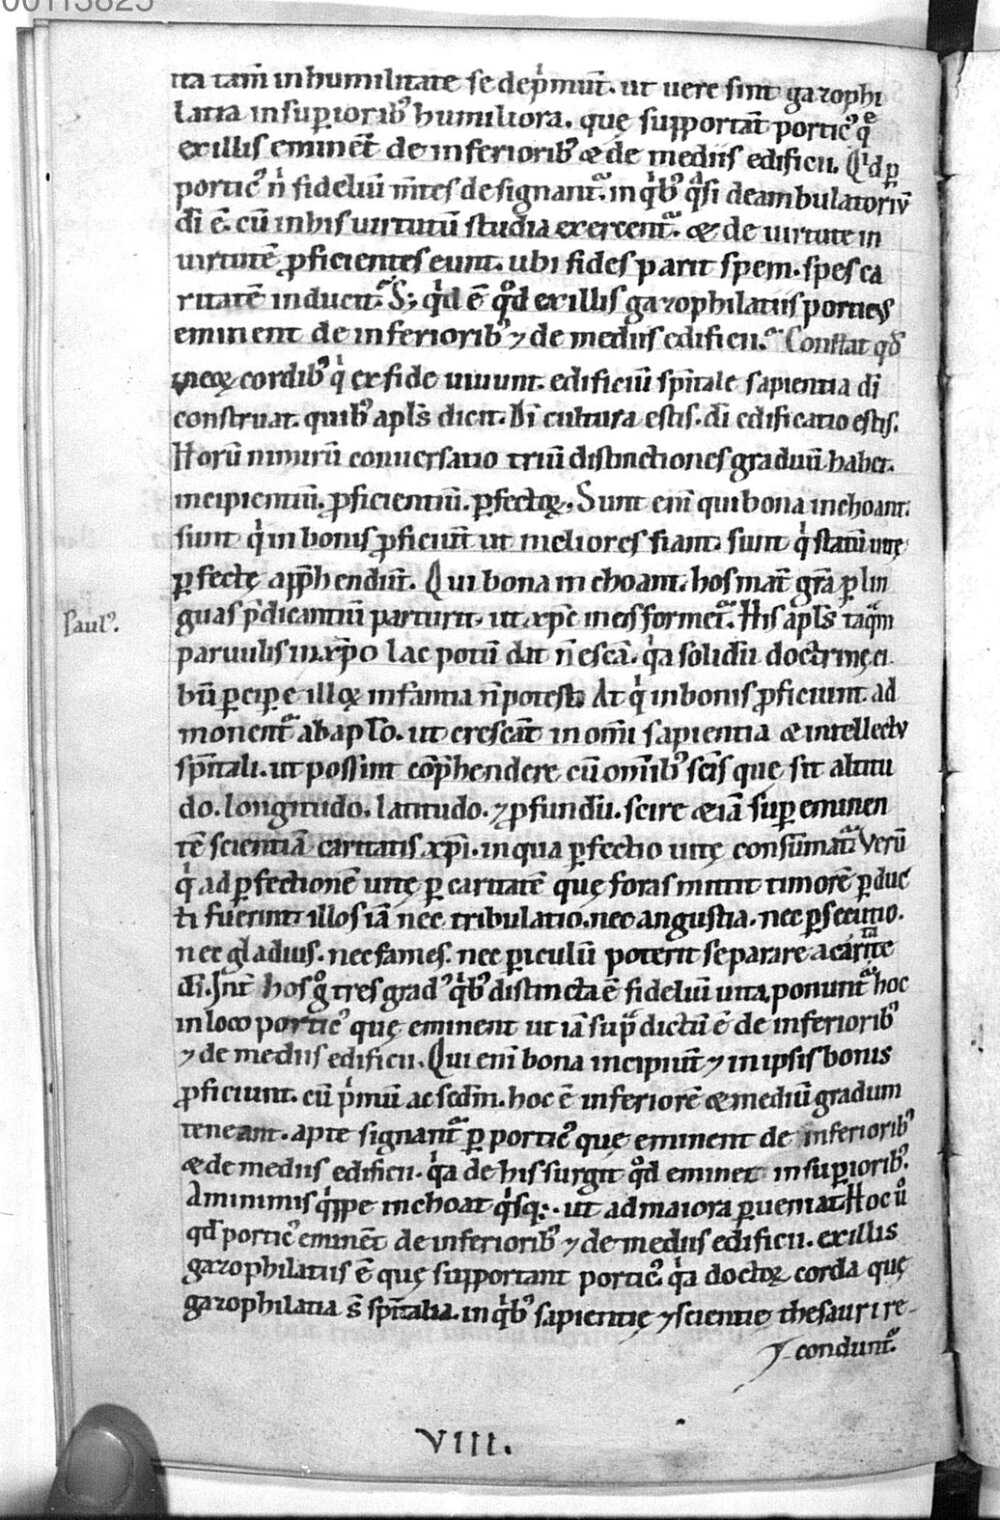 00113825
ita tam̄ in humilitate se dep̍mūt. ut uere sint gazophi
latia in sup̱iorib⁹ humiliora. quę supportāt portic⁹ q̄
ex illis eminēt de inferiorib⁹ & de mediis edificii. Qͥd p̱
portic⁹ ń fideliū m̄tes designant᷑. in qͥb⁹ qͣsi deambulatoriū
dī ē. cū in his uirtutū studia exercent᷑. & de uirtute in
uirtutē ꝓficientes eunt. ubi fides parit spem. spes ca
ritatē inducit. S; qͥd ē qͦd ex illis gazophilatiis porticꝰ
eminent de inferiorib⁹ ⁊ de mediis edificii. Constat qđ
in eoꝝ cordib⁹ qͥ ex fide uiuunt. edificiū sp̄itale sapientia dī
construat. quib⁹ apl̄s dicit. Dī cultura estis. dī edificatio estis.
Horū nimirū conuersatio triū distinctiones graduū habet.
incipientiū. ꝓficientiū. p̱fectoꝝ. Sunt enī qui bona inchoant.
sunt qͥ in bonis ꝓficiūt ut meliores fiant. sunt qͥ statū uitę
p̱fectę app̄hendūt. Qui bona inchoant. hos mat̄ gr̄a p̱ lin
guas p̄dicantiū parturit. ut xp̄c in eis formet᷑. His apl̄s taqͣm
Paul⁹.
paruulis in xp̄o lac potū dat n̄ escā. qͣa solidū doctrinę ci
bū p̱cip̱e illoꝝ infantia n̄ potest. At qͥ in bonis ꝓficiunt. ad
monent᷑ ab apl̄o. ut crescāt in om̄i sapientia & intellectu
sp̄itali. ut possint cōp̄hendere cū om̄ib⁹ sc̄is que sit altitu
do. longitudo. latitudo. ⁊ ꝓfundū. scire & iā sup̱eminen
tē scientiā caritatis xp̄i. in qua p̱fectio uitę consūmat᷑. Verū
qͥ ad p̱fectionē uitę p̱ caritatē quę foras mittit timorē p̱duc
ti fuerint. illos iā nec tribulatio. nec angustia. nec p̱secutio.
nec gladius. nec fames. nec p̱iculū poterit separare a caritate
dī. Int̄ hos gͦ tres grad⁹ qͥb⁹ distincta ē fideliū uita. ponunt᷑ hoc
in loco portic⁹ quę eminent ut iā sup̄ dictū ē de inferiorib⁹
⁊ de mediis edificii. Qui enī bona incipiūt ⁊ in ipsis bonis
ꝓficiunt. cū p̍mū ac scd̄m. hoc ē inferiorē & mediū gradum
teneant. apte signant᷑ p̱ portic⁹ que eminent de inferiorib⁹
& de mediis edificii. qͣa de his surgit qͦd eminet in sup̱iorib⁹.
A minimis qͥppe inchoat qͥsq;. ut ad maiora p̱ueniat. Hoc ů
qd̄ portic⁹ eminēt de inferiorib⁹ ⁊ de mediis edificii. ex illis
gazophilatiis ē quę supportant portic⁹. qͣa doctoꝝ corda quę
gazophilatia s̄ sp̄italia. in qͥb⁹ sapientię ⁊ scientię thesauri re-
condunt᷑.
VIII.